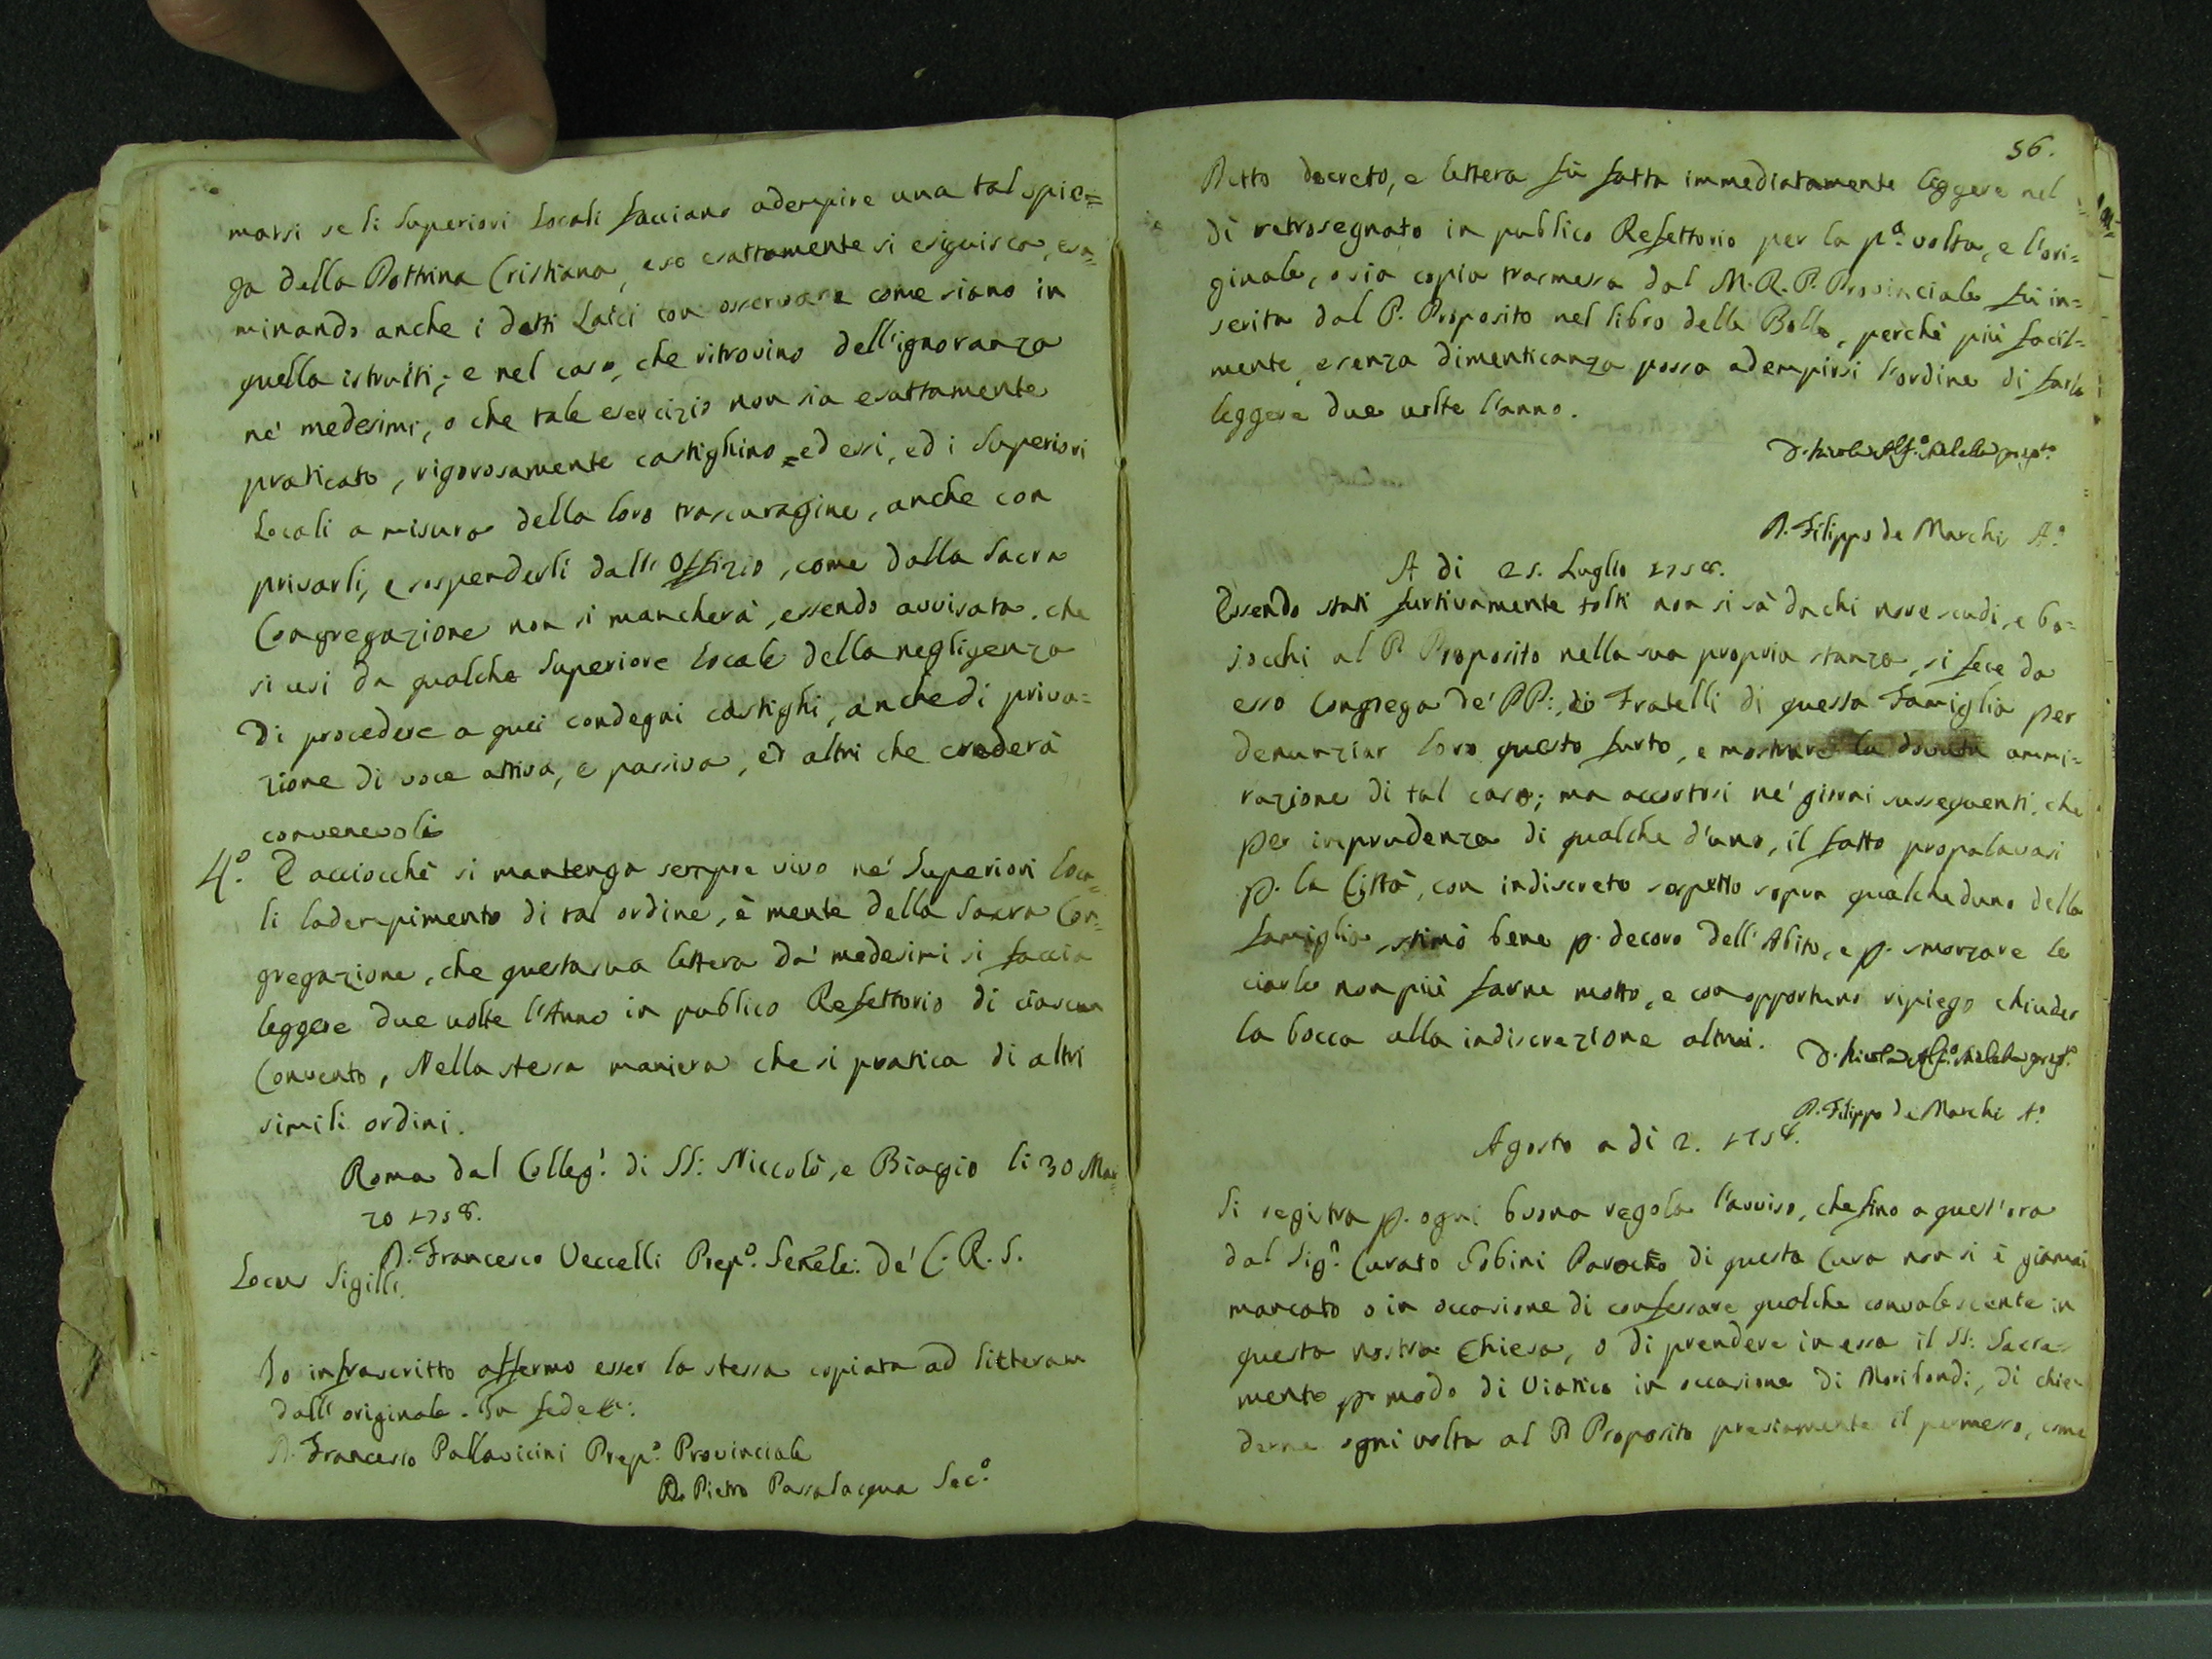 marsi se li Superiori Locali facciano adempire una tal spie=
ga della Dottrina Cristiana, e se esattamente si esiguisca, esa=
minando anche i detti Laici con osservare come siano in
quella istruiti; e nel caso, che ritrovino dell'ignoranza
ne' medesimi, o che tale esercizio non sia esattamente
praticato, rigorosamente castighino ed essi, ed i Superiori
Locali a misura della loro trascuragine, anche con
privarli, e sospenderli dall'Offizio, come dalla Sacra
Congregazione non si mancherà, essendo avvisata, che
si usi da qualche Superiore Locale della negligenza
di procedere a quei condegni castighi, anche di priva=
zione di voce attiva, e passiva, ed altri che crederà
convenevoli
4.º E acciocchè si mantenga sempre vivo ne' Superiori Loca=
li l'adempimento di tal ordine, è mente della Sacra Con=
gregazione, che questa sua lettera da' medesimi si faccia
leggere due volte l'Anno in publico Refettorio di ciascun
Convento, Nella stessa maniera che si pratica di altri
simili ordini.
Roma dal Colleg.º di SS: Niccolò, e Biagio li 30 Mar=
zo 1758.
D: Francesco Veccelli Prep.º Genele: de' C. R. S.
Locus Sigilli.
Io infrascritto affermo esser la stessa copiata ad litteram
dall'originale. In fede &:
D. Francesco Pallavicini Prep.º Provinciale
D. Pietro Passalacqua Sec.º
56.
Detto decreto, e lettera fù fatta immediatamente leggere nel
dì retrosegnato in publico Refettorio per la p.ª volta, e l'ori=
ginale, o sia copia trasmessa dal M. R. P. Provinciale fù in=
serita dal P. Proposito nel libro delle Bolle, perchè più facil=
mente, e senza dimenticanza possa adempirsi l'ordine di farla
leggere due volte l'anno.
D. Nicola Alf.º prep.to
D. Filippo de Marchi A.º
A di 25. Luglio 1758.
Essendo stati furtivamente tolti non si sà da chi nove scudi, e ba=
jocchi al P. Proposito nella sua propria stanza, si fece da
esso Congrega de' PP:, e Fratelli di questa Famiglia per
denunziar loro questo furto, e mostrare la dovuta ammi=
razione di tal caso; ma accortosi ne' giorni susseguenti, che
per imprudenza di qualche d'uno, il fatto propalavasi
p. la Città, con indiscreto sospetto sopra qualcheduno della
famiglia stimò bene p. decoro dell'Abito, e p. smorzare le
ciarle non più farne motto, e con opportuno ripiego chiuder
la bocca alla indiscrezione altrui.
D. Nicola Alf.º prep.to
D. Filippo de Marchi A.º
Agosto a di 2. 1758.
Si registra p. ogni buona regola l'avviso, che fino a quest'ora
dal Sig.r Curato Gobini Parocho di questa Cura non si è giamai
mancato o in occasione di confessare qualche convalescente in
questa nostra Chiesa, o di prendere in essa il SS: Sacra=
mento p. modo di Viatico in occasione di Moribondi, di chie=
derne ogni volta al P. Proposito presiamente il permesso, come